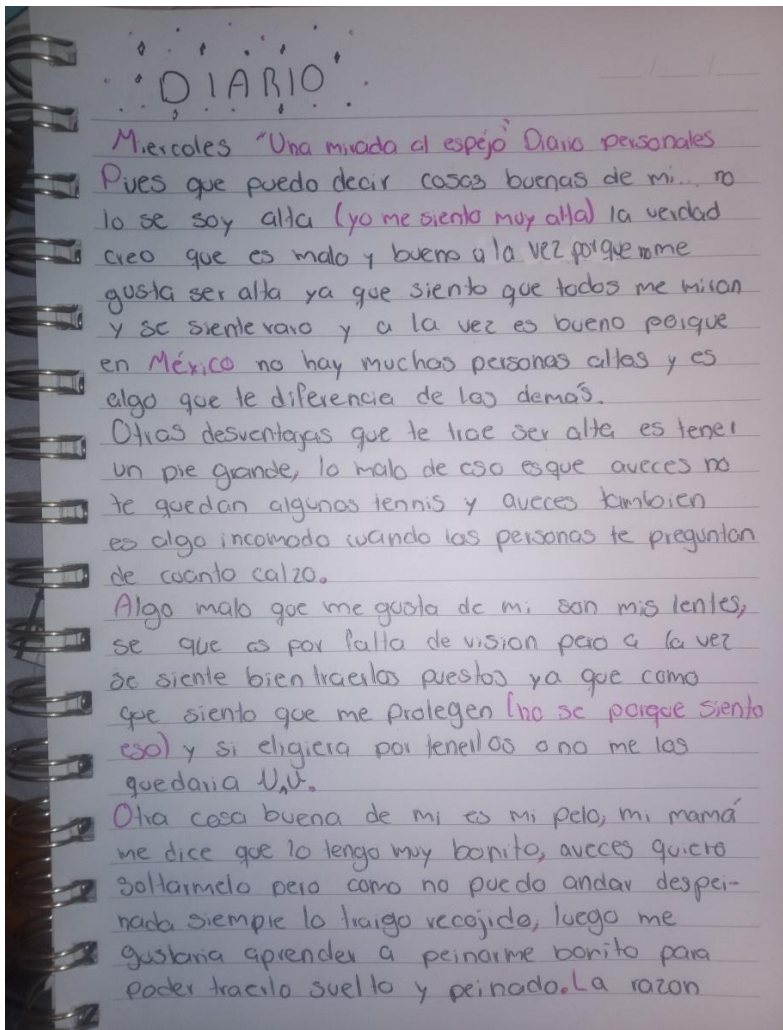 DIARIO
Miercoles "Una mirada al espejo" Diario personales
Pues que puedo decir cosas buenas de mi... no
lo se soy alta (yo me siento muy alta) la verdad
creo que es malo y bueno a la vez porque no me
gusta ser alta ya que siento que todos me miran
y se siente raro y a la vez es bueno porque
en México no hay muchas personas altas y es
algo que te diferencia de los demás.
Otras desventajas que te trae ser alta es tener
un pie grande, lo malo de eso es que aveces no
te quedan algunos tennis y aveces tambien
es algo incomodo cuando las personas te preguntan
de cuanto calzo.
Algo malo que me gusta de mi son mis lentes,
se que es por falta de vision pero a la vez
se siente bien traerlos puestos ya que como
que siento que me protegen (no se porque siento
eso) y si eligiera por tenerlos o no me los
quedaria U,U.
Otra cosa buena de mi es mi pelo, mi mamá
me dice que lo tengo muy bonito, aveces quiero
soltarmelo pero como no puedo andar despei-
nada siempre lo traigo recojido, luego me
gustaria aprender a peinarme bonito para
poder traerlo suelto y peinado. La razon